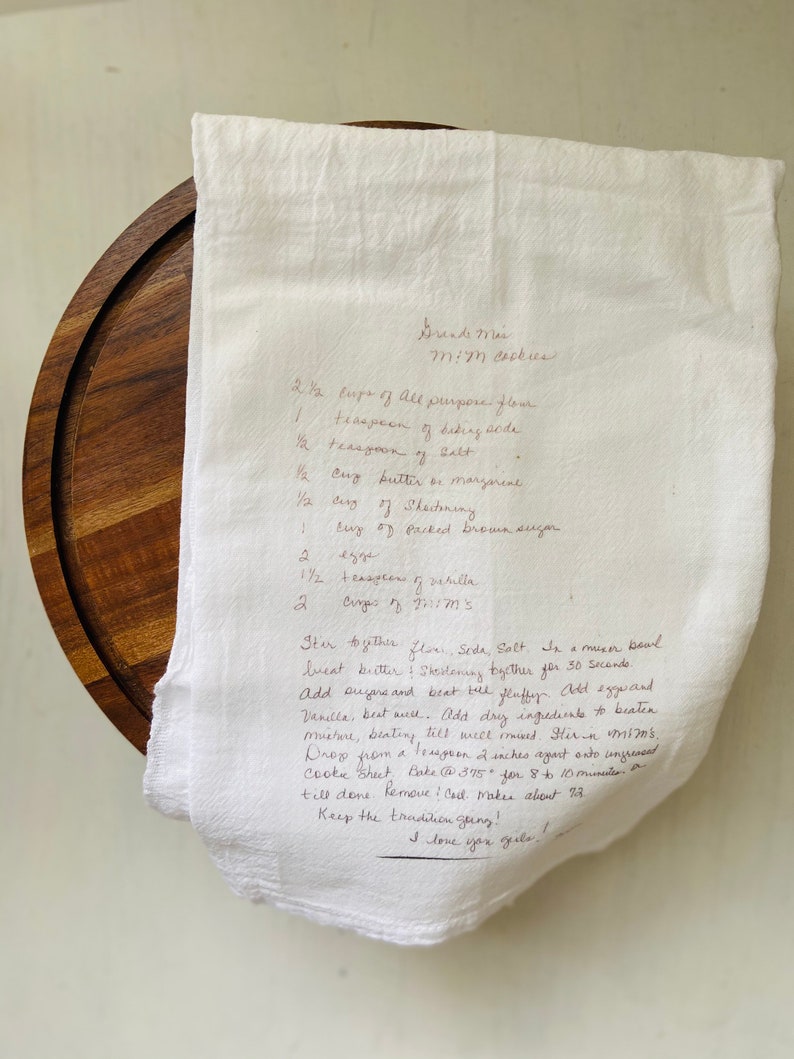 Grand Ma's
M&M Cookies
2 1/2 cups of All purpose flour
1 teaspoon of baking soda
1/2 teaspoon of Salt
1/2 cup butter or margarine
1/2 cup of Shortening
1 cup of packed brown sugar
2 eggs
1 1/2 teaspoons of vanilla
2 cups of M&M's
Stir together flour, Soda, Salt. In a mixer bowl
beat butter & Shortening together for 30 seconds.
Add sugars and beat till fluffy. Add eggs and
Vanilla, beat well. Add dry ingredients to beaten
mixture, beating till well mixed. Stir in M&M's.
Drop from a teaspoon 2 inches apart onto ungreased
Cookie Sheet. Bake @ 375° for 8 to 10 minutes. or
till done. Remove & Cool. Makes about 72
Keep the tradition going!
I love you girls!